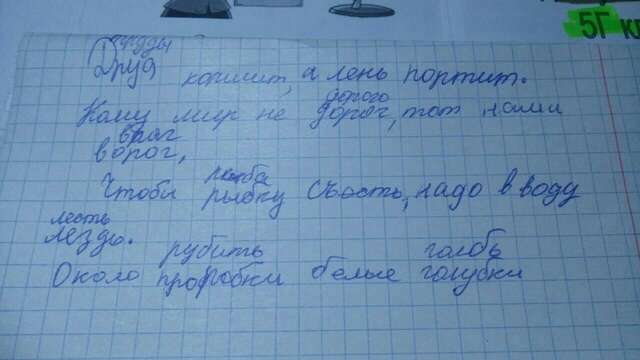 5Г к
труды
Друд кормит, а лень портит.
дорого
Кому мир не дорог, тот нами
враг
ворог,
рыба
Чтобы рыбку съесть, надо в воду
лесть
лездь.
рубить голубь
Около профобки белые голубки